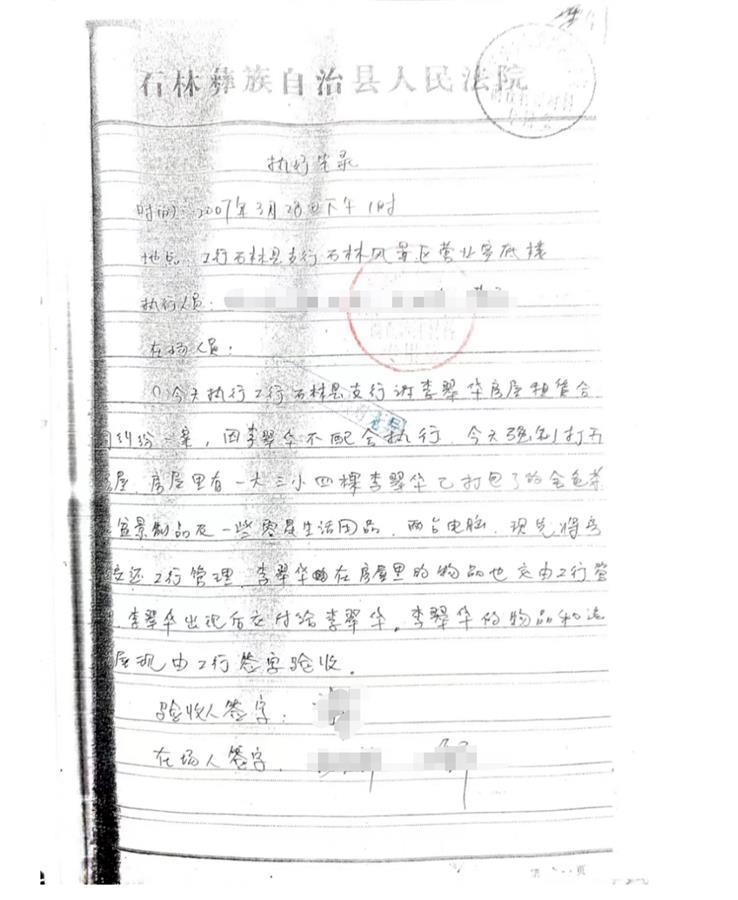 石林彝族自治县人民法院
执行笔录
时间：2007年3月28日下午1时
地点：工行石林县支行石林风景区营业室底楼
执行人员：
在场人员：
今天执行工行石林县支行诉李翠华房屋租赁合
纠纷一案，因李翠华不配合执行，今天强制打开
屋，房屋里有一大三小四棵李翠华已打包了的金色茶
盆景制品及一些零星生活用品，两台电脑，现先将房
交还工行管理，李翠华在房屋里的物品也交由工行管
，李翠华出现后交付给李翠华。李翠华的物品和
屋现由工行签字验收。
验收人签字：
在场人签字：
第 页